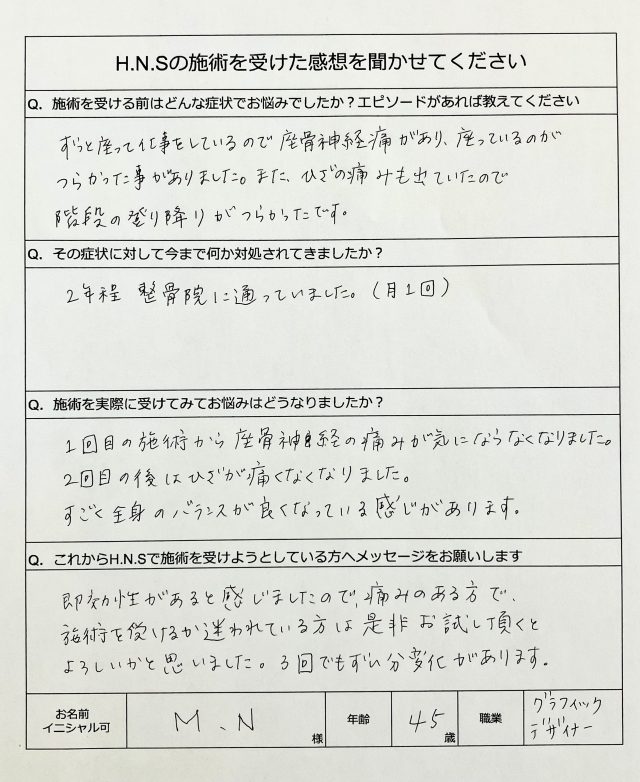 H.N.Sの施術を受けた感想を聞かせてください
Q. 施術を受ける前はどんな症状でお悩みでしたか？エピソードがあれば教えてください
ずっと座って仕事をしているので座骨神経痛があり、座っているのが
つらかった事がありました。また、ひざの痛みも出ていたので
階段の登り降りがつらかったです。
Q. その症状に対して今まで何か対処されてきましたか？
2年程 整骨院に通っていました。(月1回)
Q. 施術を実際に受けてみてお悩みはどうなりましたか？
1回目の施術から座骨神経の痛みが気にならなくなりました。
2回目の後はひざが痛くなくなりました。
すごく全身のバランスが良くなっている感じがあります。
Q. これからH.N.Sで施術を受けようとしている方へメッセージをお願いします
即効性があると感じましたので、痛みのある方で、
施術を受けるか迷われている方は是非お試し頂くと
よろしいかと思いました。3回でもずい分変化があります。
お名前
イニシャル可
M.N
様
年齢
45
歳
職業
グラフィック
デザイナー